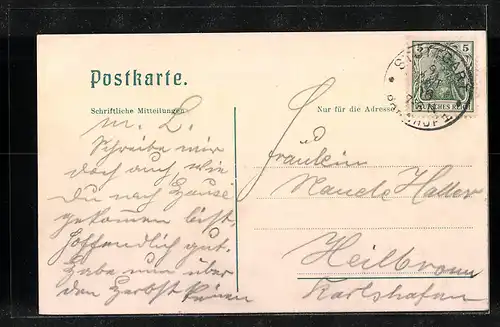 Postkarte.
Schriftliche Mitteilungen
Nur für die Adresse
5 5
DEUTSCHES REICH
STUTTGART
BAHNHOF
m. L.
Schreibe mir
doch auch, wie
Du nach Hause
gekommen bist,
hoffendlich gut.
Habe nun über
den Herbst keinen
Fräulein
Haller
Heilbronn
Karlshafen